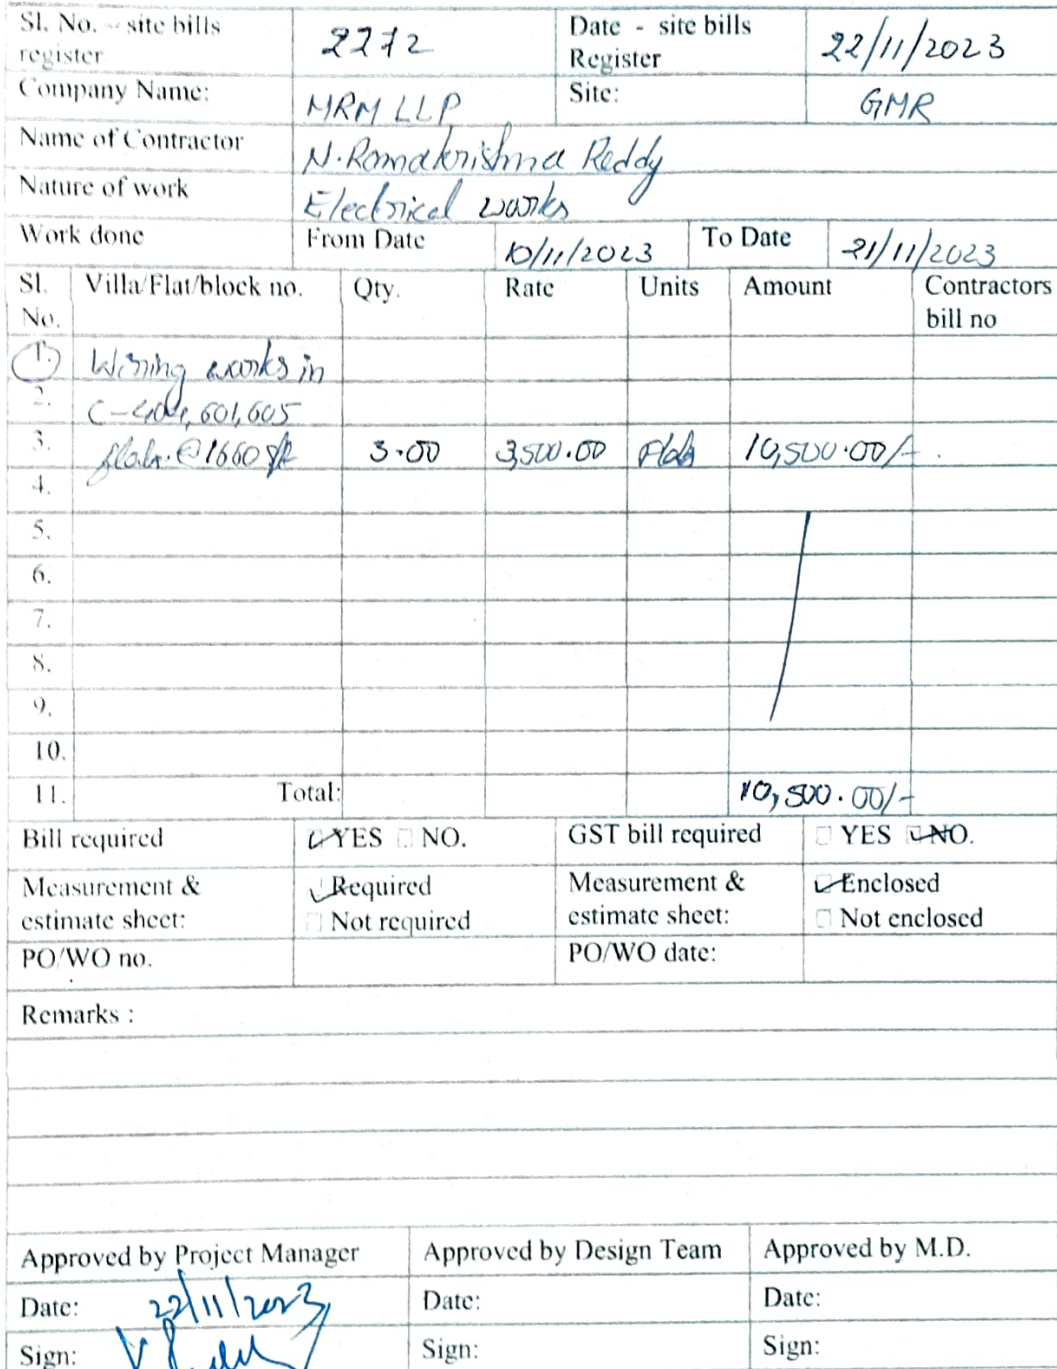 Sl. No. – site bills register 2272 Date - site bills Register 22/11/2023
Company Name: MRM LLP Site: GMR
Name of Contractor N. Ramakrishna Reddy
Nature of work Electrical works
Work done From Date 10/11/2023 To Date 21/11/2023
Sl. No. Villa/Flat/block no. Qty. Rate Units Amount Contractors bill no
1. Wiring works in
2. 601, 605
3. @1660 3.00 3,500.00 10,500.00/-
4.
5.
6.
7.
8.
9.
10.
11. Total: 10,500.00/-
Bill required YES NO. GST bill required YES NO.
Measurement & estimate sheet: Required Not required Measurement & estimate sheet: Enclosed Not enclosed
PO/WO no. PO/WO date:
Remarks :
Approved by Project Manager Approved by Design Team Approved by M.D.
Date: 22/11/2023 Date: Date:
Sign: Sign: Sign: